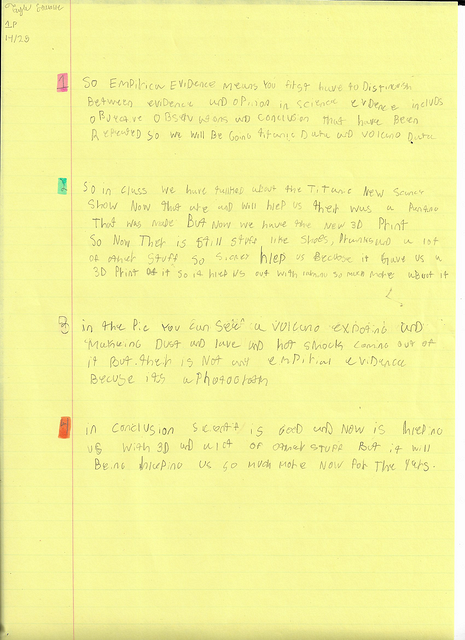 1P
14/28
1
So Empirical Evidence means you first have to Distinguish
Between evidence and opinion in science evidence includs
observations and conclusion that have Been
Repeated so we will Be Going titanic Data and volcano Data
2
So in class we have talked about the TiTanic New Science
Show Now that are and will help us ther was a
That was made But Now we have the New 3D Print
So Now Ther is still stuff like shoes, and a lot
of other stuff So help us Because it gave us a
3D Print of it so it help us out with so much more about it
3
in the Pic you can see a volcano exploting and
Dust and lave and hot smock coming out of
it But ther is Not any empirial evidence
Becuse its a Photograph
4
in conclusion is Good and Now is helping
us with 3D and a lot of other stuff But it will
Being helping us so much more Now for The years.